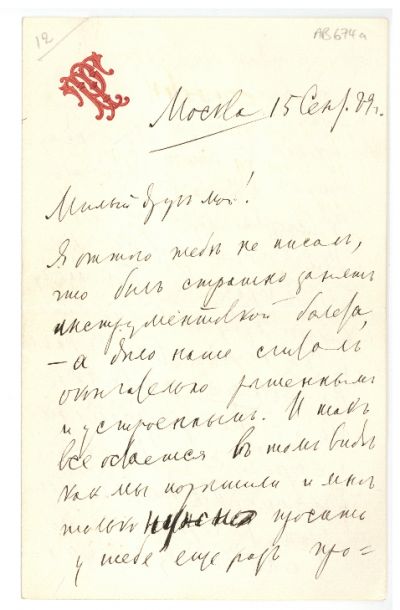 12
AB674a
Москва 15 Сент. 89 г.
Милый другъ мой!
Я оттого тебѣ не писалъ,
что былъ страшно занятъ
инструментовкой балета,
— а дѣло наше считалъ
окончательно рѣшеннымъ
и устроеннымъ. И такъ
все остается въ томъ видѣ
какъ мы порѣшили и мнѣ
только нужно просить
у тебя еще разъ про=